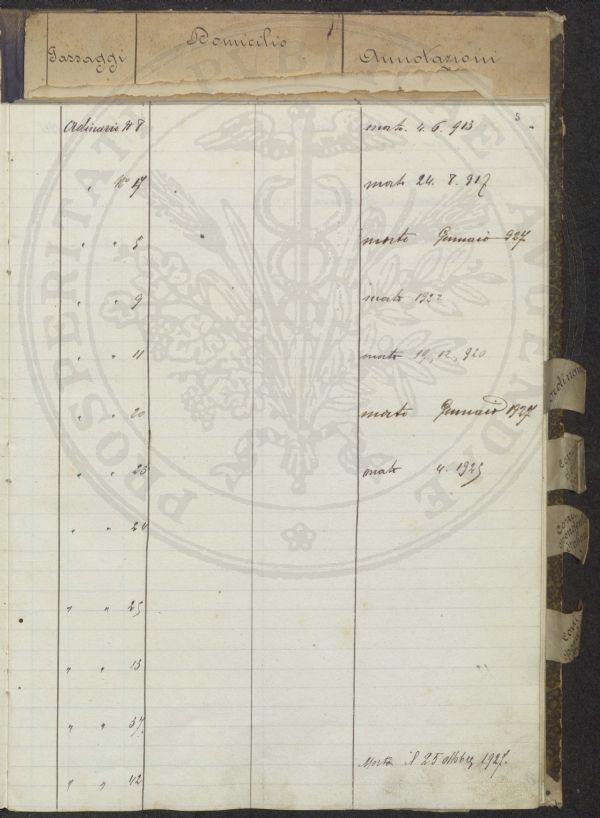 Passaggi Domicilio Annotazioni
5
Ordinario No 8 morto. 4. 6. 913
" No 17 morto 24. 8. 917
" " 5 morto Gennaio 927
" " 9 morto 1922
" " 11 morto 19, 12, 920
" " 20 morto Gennaio 1927
" " 23 morto 4. 1925
" " 24
" " 25
" " 13
" " 37
Morto il 25 ottobre 1927.
" " 42
PROSPERITATI PUBLICAE AUGENDAE